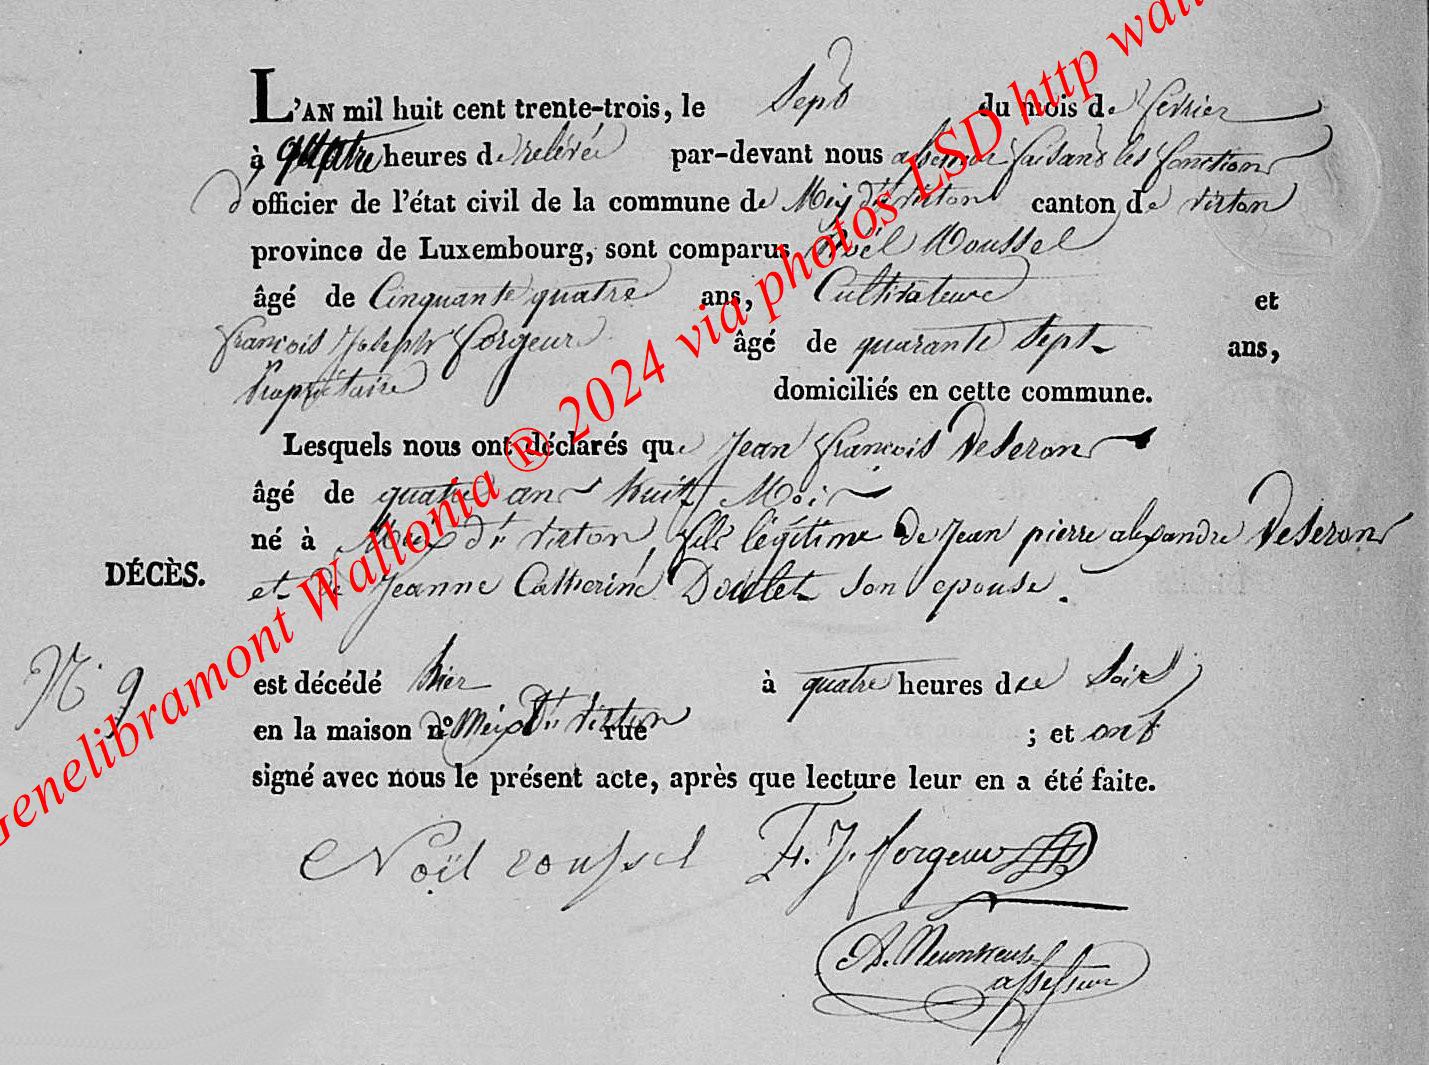 L'AN mil huit cent trente-trois, le Sept du mois de fevrier
à quatre heures de relevée par-devant nous assesseur faisant les fonctions
d'officier de l'état civil de la commune de Meix dt virton canton de virton
province de Luxembourg, sont comparus Noël Roussel
âgé de Cinquante quatre ans, Cultivateur et
françois Joseph forgeur âgé de quarante Sept ans,
Propriétaire domiciliés en cette commune.
Lesquels nous ont déclarés que Jean françois Deseron
âgé de quatre ans huit Moi
né à Meix dt virton, fils légitime de Jean pierre alexandre Deseron
DÉCÈS. et de Jeanne Catherine Doulet Son epouse.
N° 9 est décédé hier à quatre heures du Soir
en la maison n° Meix Dt virton rue ; et ont
signé avec nous le présent acte, après que lecture leur en a été faite.
Noël roussel F. J. forgeur
A.
assesseur
Genelibramont Wallonia ® 2024 via photos LSD http wal